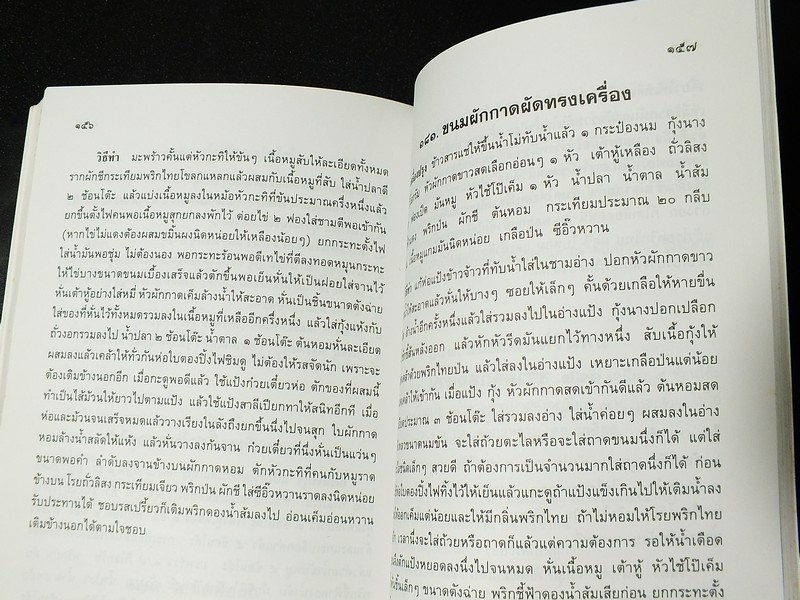 ๑๕๖
วิธีทำ มะพร้าวคั้นแต่หัวกะทิให้ข้นๆ เนื้อหมูสับให้ละเอียดทั้งหมด
รากผักชีกระเทียมพริกไทยโขลกแหลกแล้วผสมกับเนื้อหมูที่สับ ใส่น้ำปลาดี
๒ ช้อนโต๊ะ แล้วแบ่งเนื้อหมูลงในหม้อหัวกะทิที่ข้นประมาณครึ่งหนึ่งแล้ว
ยกขึ้นตั้งไฟคนพอเนื้อหมูสุกยกลงพักไว้ ต่อยไข่ ๒ ฟองใส่ชามตีพอเข้ากัน
(หากไข่ไม่แดงต้องผสมขมิ้นผงนิดหน่อยให้เหลืองน้อยๆ) ยกกระทะตั้งไฟ
ใส่น้ำมันพอชุ่ม ไม่ต้องนอง พอกระทะร้อนพอดีเทไข่ที่ตีลงทอดหมุนกระทะ
ให้ไข่บางขนาดขนมเบื้องเสร็จแล้วตักขึ้นพอเย็นหั่นให้เป็นฝอยใส่จานไว้
หั่นเต้าหู้อย่างใส่หมี่ หัวผักกาดเค็มล้างน้ำให้สะอาด หั่นเป็นชิ้นขนาดดังฉ่าย
ใส่ของที่หั่นไว้ทั้งหมดรวมลงในเนื้อหมูที่เหลืออีกครึ่งหนึ่ง แล้วใส่กุ้งแห้งกับ
ถั่วงอกรวมลงไป น้ำปลา ๒ ช้อนโต๊ะ น้ำตาล ๑ ช้อนโต๊ะ ต้นหอมหั่นละเอียด
ผสมลงแล้วเคล้าให้ทั่วกันห่อใบตองปิ้งไฟชิมดู ไม่ต้องให้รสจัดนัก เพราะจะ
ต้องเติมข้างนอกอีก เมื่อกะดูพอดีแล้ว ใช้แป้งก๋วยเตี๋ยวห่อ ตักของที่ผสมนี้
ทำเป็นไส้ม้วนให้ยาวไปตามแป้ง แล้วใช้แป้งสาลีเปียกทาให้สนิทอีกที เมื่อ
ห่อและม้วนจนเสร็จหมดแล้ววางเรียงในลังถึงยกขึ้นนึ่งไปจนสุก ใบผักกาด
หอมล้างน้ำสลัดให้แห้ง แล้วหั่นวางลงก้นจาน ก๋วยเตี๋ยวที่นึ่งหั่นเป็นแว่นๆ
ขนาดพอคำ ลำดับลงจานข้างบนผักกาดหอม ตักหัวกะทิที่คนกับหมูราด
ข้างบน โรยถั่วลิสง กระเทียมเจียว พริกป่น ผักชี ใส่ซีอิ๊วหวานราดลงนิดหน่อย
รับประทานได้ ชอบรสเปรี้ยวก็เติมพริกดองน้ำส้มลงไป อ่อนเค็มอ่อนหวาน
เติมข้างนอกได้ตามใจชอบ
๑๕๗
๑๘๑. ขนมผักกาดผัดทรงเครื่อง
ข้าวสารแช่ให้ขึ้นน้ำโม่ทับน้ำแล้ว ๑ กระป๋องนม กุ้งนาง
หัวผักกาดขาวสดเลือกอ่อนๆ ๑ หัว เต้าหู้เหลือง ถั่วลิสง
มันหมู หัวไช้โป๊เค็ม ๑ หัว น้ำปลา น้ำตาล น้ำส้ม
พริกป่น ผักชี ต้นหอม กระเทียมประมาณ ๒๐ กลีบ
เนื้อหมูแกมมันนิดหน่อย เกลือป่น ซีอิ๊วหวาน
แก้ห่อแป้งข้าวจ้าวที่ทับน้ำใส่ในชามอ่าง ปอกหัวผักกาดขาว
สะอาดแล้วหั่นให้บางๆ ซอยให้เล็กๆ คั้นด้วยเกลือให้หายขื่น
ล้างน้ำอีกครั้งหนึ่งแล้วใส่รวมลงไปในอ่างแป้ง กุ้งนางปอกเปลือก
หลังออก แล้วหักหัวรีดมันแยกไว้ทางหนึ่ง สับเนื้อกุ้งให้
ด้วยพริกไทยป่น แล้วใส่ลงในอ่างแป้ง เหยาะเกลือป่นแต่น้อย
ให้เข้ากัน เมื่อแป้ง กุ้ง หัวผักกาดสดเข้ากันดีแล้ว ต้นหอมสด
ประมาณ ๓ ช้อนโต๊ะ ใส่รวมลงอ่าง ใส่น้ำค่อยๆ ผสมลงในอ่าง
ขนาดนมข้น จะใส่ถ้วยตะไลหรือจะใส่ถาดขนมนึ่งก็ได้ แต่ใส่
ชนิดเล็กๆ สวยดี ถ้าต้องการเป็นจำนวนมากใส่ถาดนึ่งก็ได้ ก่อน
ใบตองปิ้งไฟทิ้งไว้ให้เย็นแล้วแกะดูถ้าแป้งแข็งเกินไปให้เติมน้ำลง
ออกเค็มแต่น้อยและให้มีกลิ่นพริกไทย ถ้าไม่หอมให้โรยพริกไทย
เวลานึ่งจะใส่ถ้วยหรือถาดก็แล้วแต่ความต้องการ รอให้น้ำเดือด
ตักแป้งหยอดลงนึ่งไปจนหมด หั่นเนื้อหมู เต้าหู้ หัวไช้โป๊เค็ม
ชิ้นเล็กๆ ขนาดดังฉ่าย พริกชี้ฟ้าดองน้ำส้มเสียก่อน ยกกระทะตั้ง